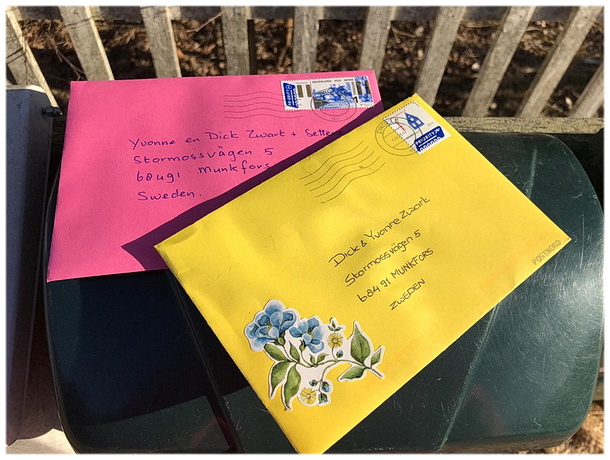 Yvonne en Dick Zwart + Setter
Stormossvägen 5
68491 Munkfors
Sweden.
NEDERLAND
Dick & Yvonne Zwart
Stormossvägen 5
684 91 MUNKFORS
ZWEDEN
POSTNORD
PRIORITY